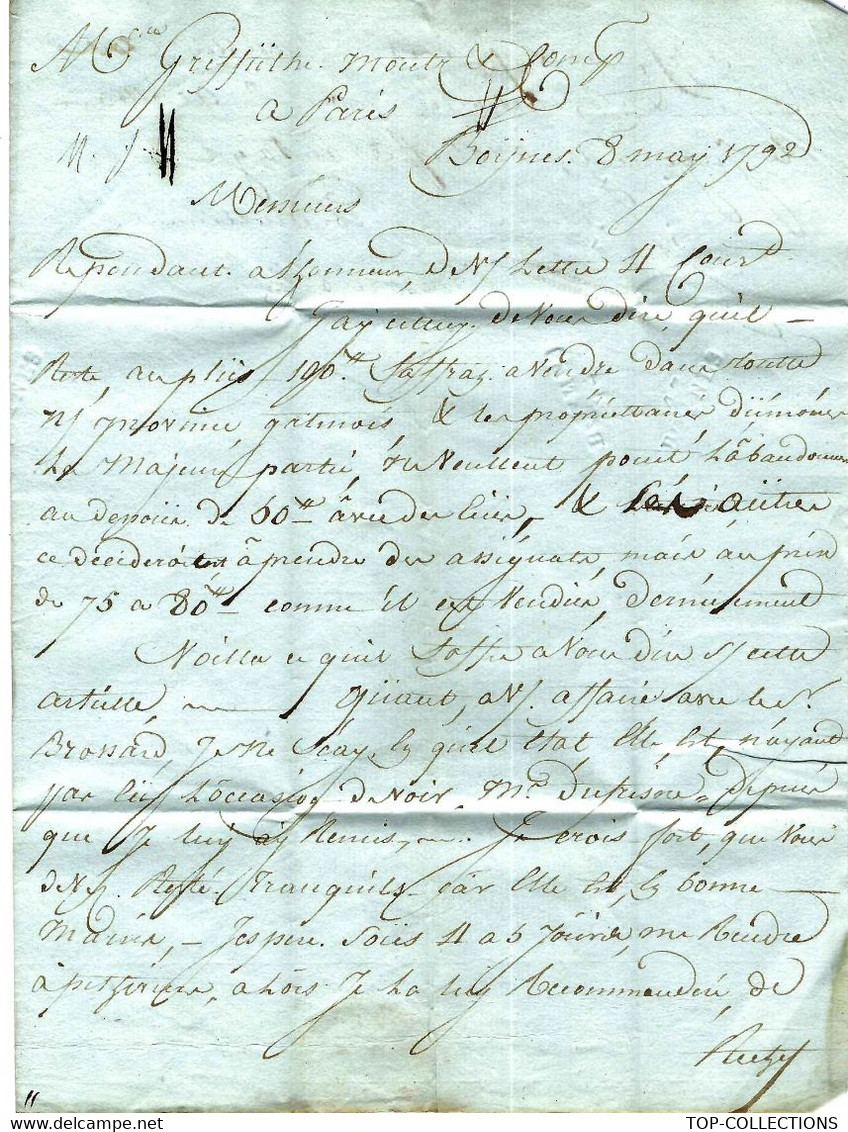 Mrs Griffithe. Montz & Comp
a Paris
Boÿnes. 8 may 1792
Messieurs
Repondant. a lhonneur, de V/ Lettre 4 Court
J'ay celluy. de Vous dire quil -
Reste, au plüs 190lt Saffran. a Vendre dans toutte
N/ province gatinois & les propriettaires
La Majeur, partié, ne Veullent point Lâbandonner
au depoür de 60lt âvec des &  Les Aûtres
ce décideroient âprendre des assignats, mais au prix
de 75 a 80lt comme il est Vendüe, dernierement
Voilla ce quil Soffre a Vous dire S/ cette
artiülle, quant, a V/. affaire avec le Sr.
Brossard, Je ne Scay, En quel Etat Elle Est, n'ayant
par Eü Lôccasion de Voir, Mr. dufresne, depuis
que Je luy ay Remis. Je crois fort, que Vous
Resté. Tranquils. car Elle Est, En bonne
Mains, - Jespere. Soüs 4 a 5 Joürs, me Rendre
a pithiviers, a Lors Je La luy Recommanderé, de
TOP-COLLECTIONS